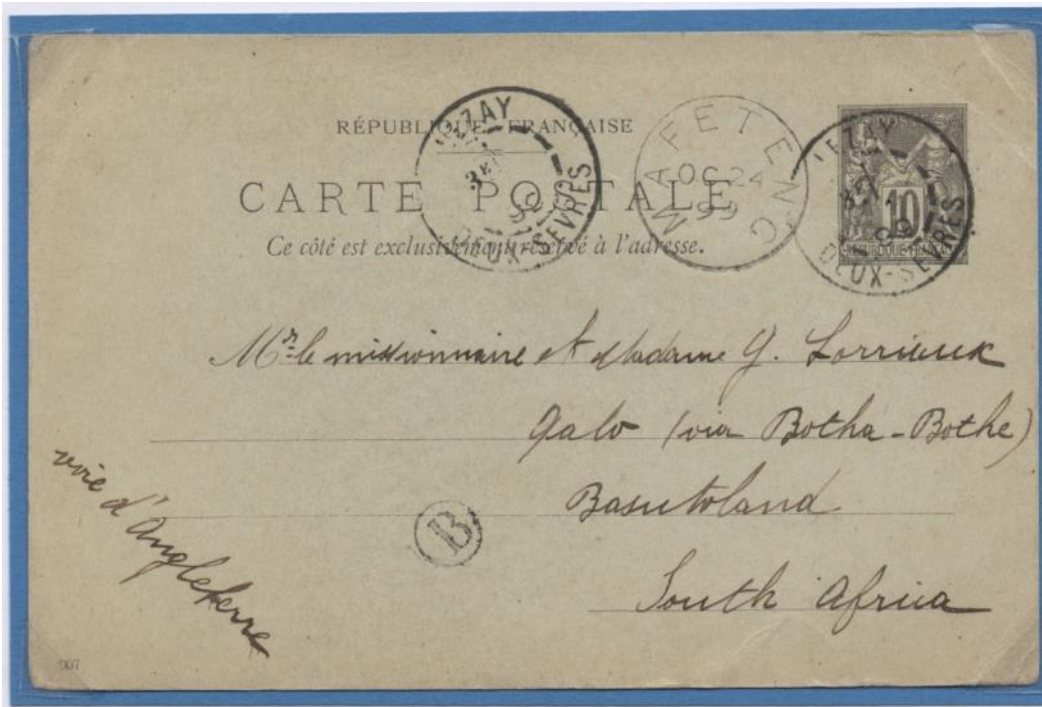 RÉPUBLIQUE FRANÇAISE
CARTE POSTALE
Ce côté est exclusivement réservé à l'adresse.
EZAY
DEUX-SÈVRES
MAFETENG
OC 24
99
EZAY
99
DEUX-SÈVRES
10
Mr le missionnaire et Madame G. Lorriaux
Qalo (via Botha-Bothe)
Basutoland
South Africa
voie d'Angleterre
B